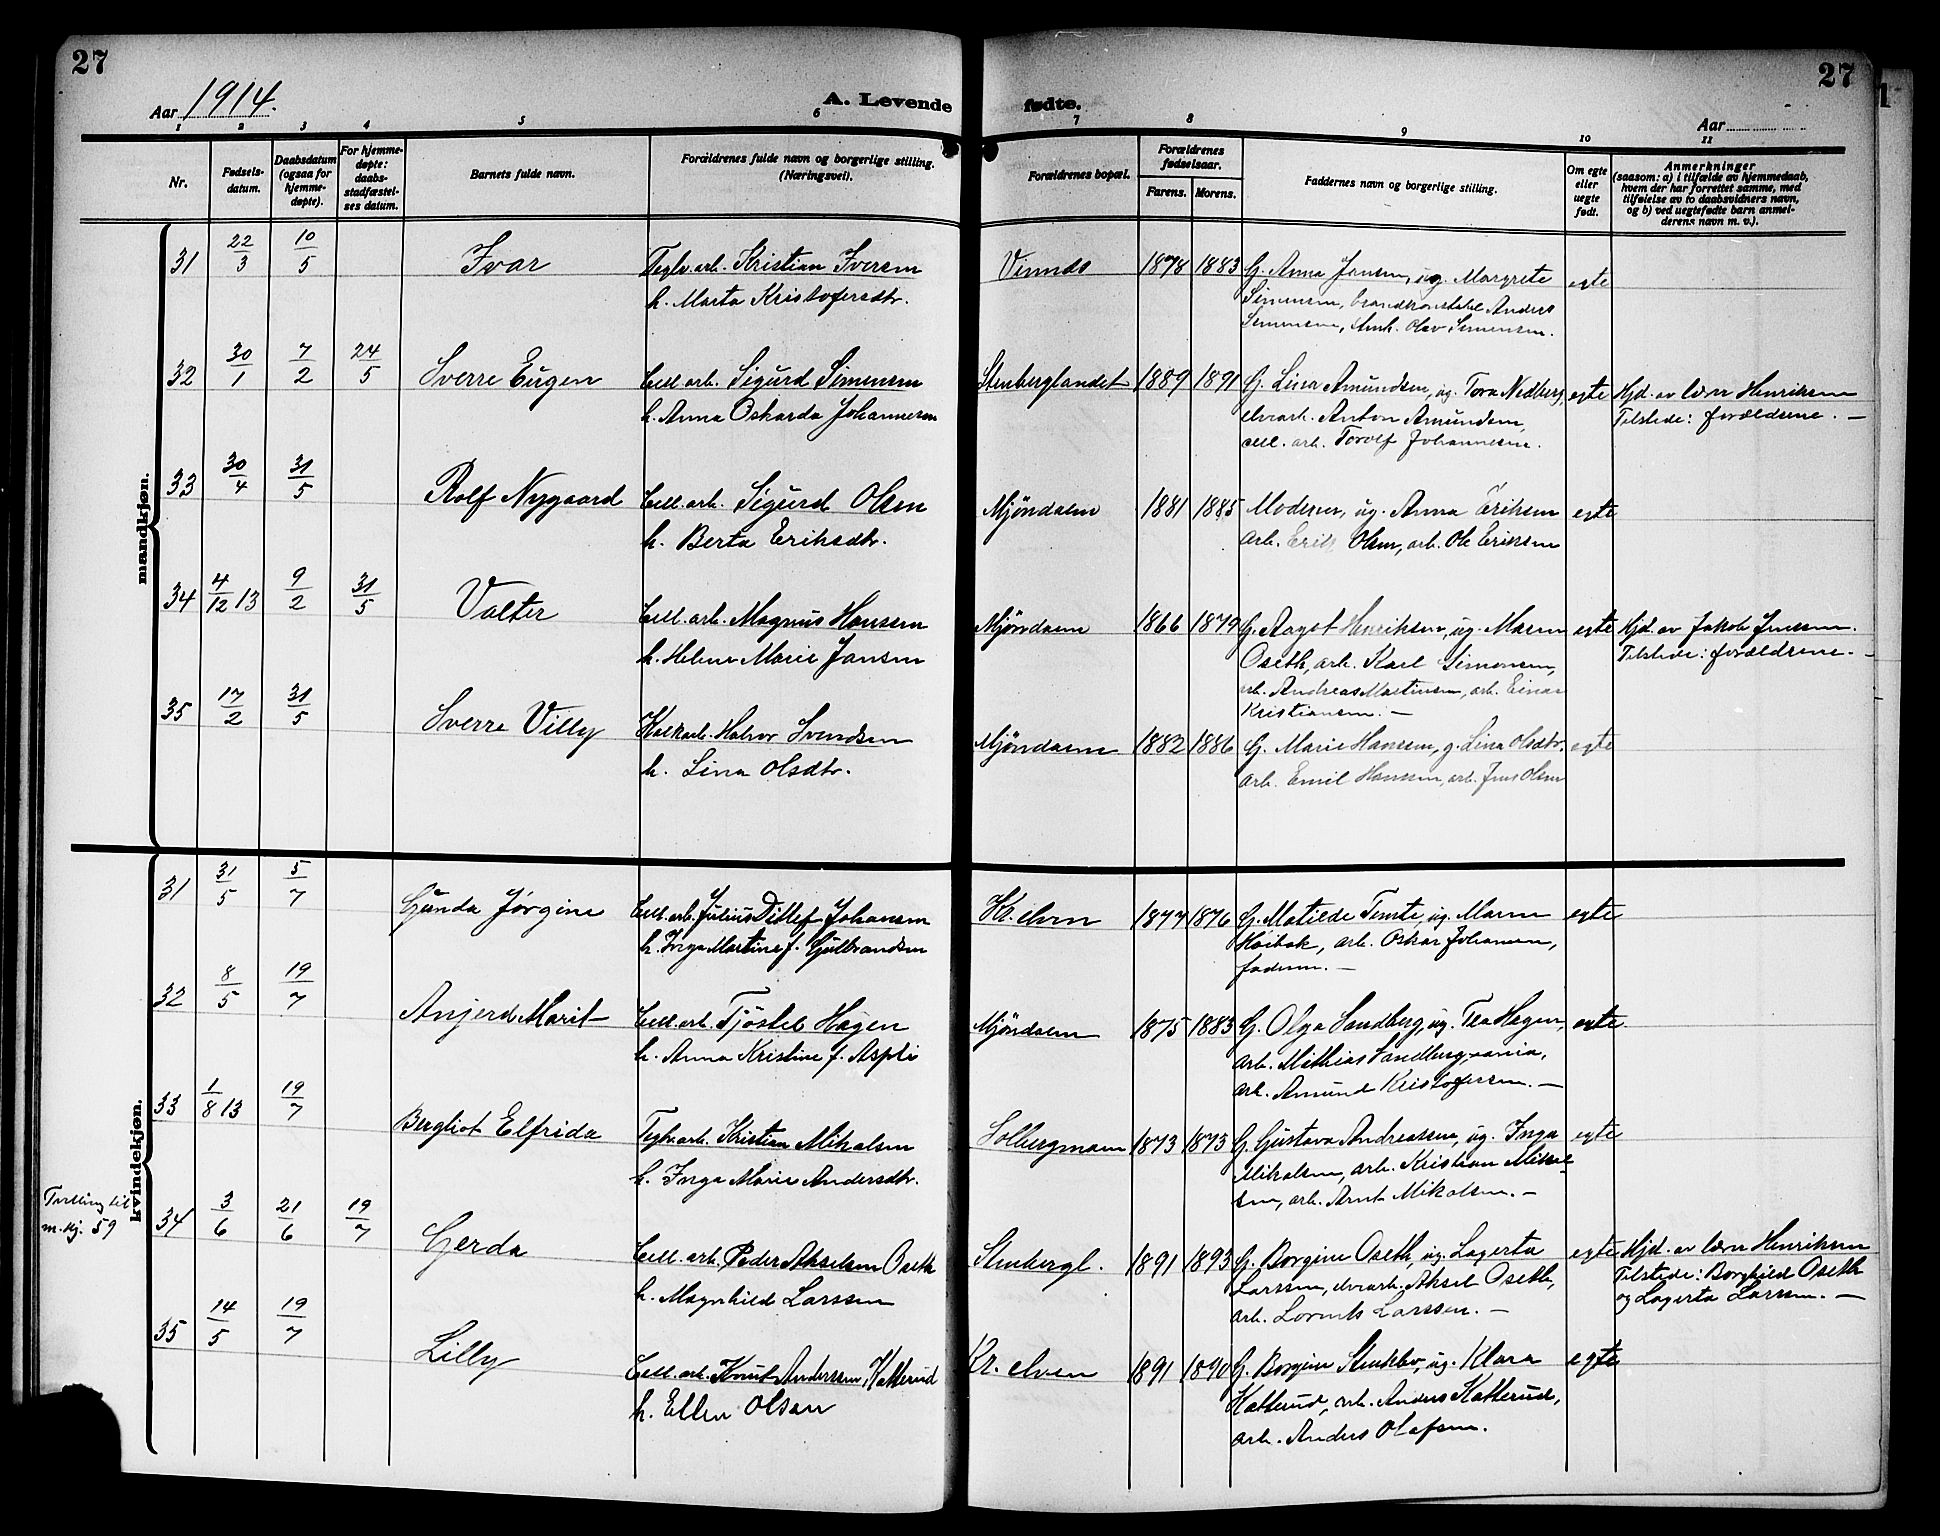 27
27
Aar 1914.
A. Levende
fødte.
Aar
1 2 3 4 5 6 7 8 9 10 11
Nr.
Fødsels-
datum.
Daabsdatum
(ogsaa for
hjemme-
døpte).
For hjemme-
døpte:
daabs-
stadfæstel-
ses datum.
Barnets fulde navn.
Forældrenes fulde navn og borgerlige stilling.
(Næringsvei).
Forældrenes bopæl.
Forældrenes
fødselsaar.
Farens. Morens.
Faddernes navn og borgerlige stilling.
Om egte
eller
uegte
født.
Anmerkninger
(saasom: a) i tilfælde av hjemmedaab,
hvem der har forrettet samme, med
tilføielse av to daabsvidners navn,
og b) ved uegtefødte barn anmel-
derens navn m. v.).
mandkjøn.
31 22/3 10/5 Ivar Teglv.arb. Kristian Iversen Vinnds 1878 1883 G. Anna Jansen, ug. Margrete egte
h. Marta Kristofersdtr. Simensen, brandkonstabel Anders
Simensen, Olav Simensen.
32 30/1 7/2 24/5 Sverre Eugen Cell. arb. Sigurd Simensen Stenberglandet 1889 1891 G. Lina Amundsen, ug. Tora Nedberg, egte Hjd. av lærer Henriksen
h. Anna Oskarda Johannesen elvearb. Anton Amundsen, Tilstede: forældrene. —
cell. arb. Torolf Johannesen.
33 30/4 31/5 Rolf Nygaard Cell. arb. Sigurd Olsen Mjöndalen 1881 1885 Moderen, ug. Anna Eriksen egte
h. Berta Eriksdtr. arb. Erik Olsen, arb. Ole Eriksen
34 4/12 13 9/2 31/5 Valter Cell. arb. Magnus Hansen Mjöndalen 1866 1879 G. Aagot Henriksen, ug. Maren egte Hjd. av Jakob Jensen.
h. Helene Marie Jansen Oseth, arb. Karl Simensen, Tilstede: forældrene. —
arb. Andreas Martinsen, arb. Einar
Kristiansen. —
35 17/2 31/5 Sverre Villy Kalkarb. Halvor Svendsen Mjöndalen 1882 1886 G. Marie Hansen, g. Lina Olsdtr. egte
h. Lina Olsdtr. arb. Emil Hansen, arb. Jens Olsen
kvindekjøn.
31 31/5 5/7 Gunda Jörgine Cell. arb. Julius Ditlef Johansen Kr. elven 1877 1876 G. Matilde Temte, ug. Maren egte
h. Inga Martine f. Gulbrandsen Höibak, arb. Oskar Johansen,
faderen. —
32 8/5 19/7 Anjerd Marit Cell. arb. Tjöstel Hagen Mjöndalen 1875 1883 G. Olga Sandberg, ug. Tea Hagen, egte.
h. Anna Kristine f. Aspli arb. Mathias Sandberg,
arb. Amund Kristofersen. —
33 1/8 13 19/7 Bergliot Elfrida Teglv.arb. Kristian Mikalsen Solbergmoen 1873 1873 G. Gustava Andreassen, ug. Inga egte
h. Inga Marie Andersdtr. Mikalsen, arb. Kristian Mikal-
sen, arb. Arnt Mikalsen. —
Tvilling til
m.kj. 59
34 3/6 21/6 19/7 Gerda Cell. arb. Peder Akselsen Oseth Stenbergl. 1891 1893 G. Borgine Oseth, ug. Lagerta egte Hjd. av lærer Henriksen
h. Magnhild Larssen Larssen, elvearb. Aksel Oseth, Tilstede: Borghild Oseth
arb. Lorents Larssen. — og Lagerta Larssen. —
35 14/5 19/7 Lilly Cell. arb. Knut Anderssen Katterud Kr. elven 1891 1890 G. Borgine Stenklev, ug. Klara egte
h. Ellen Olsen Katterud, arb. Anders Katterud,
arb. Anders Olafsen.